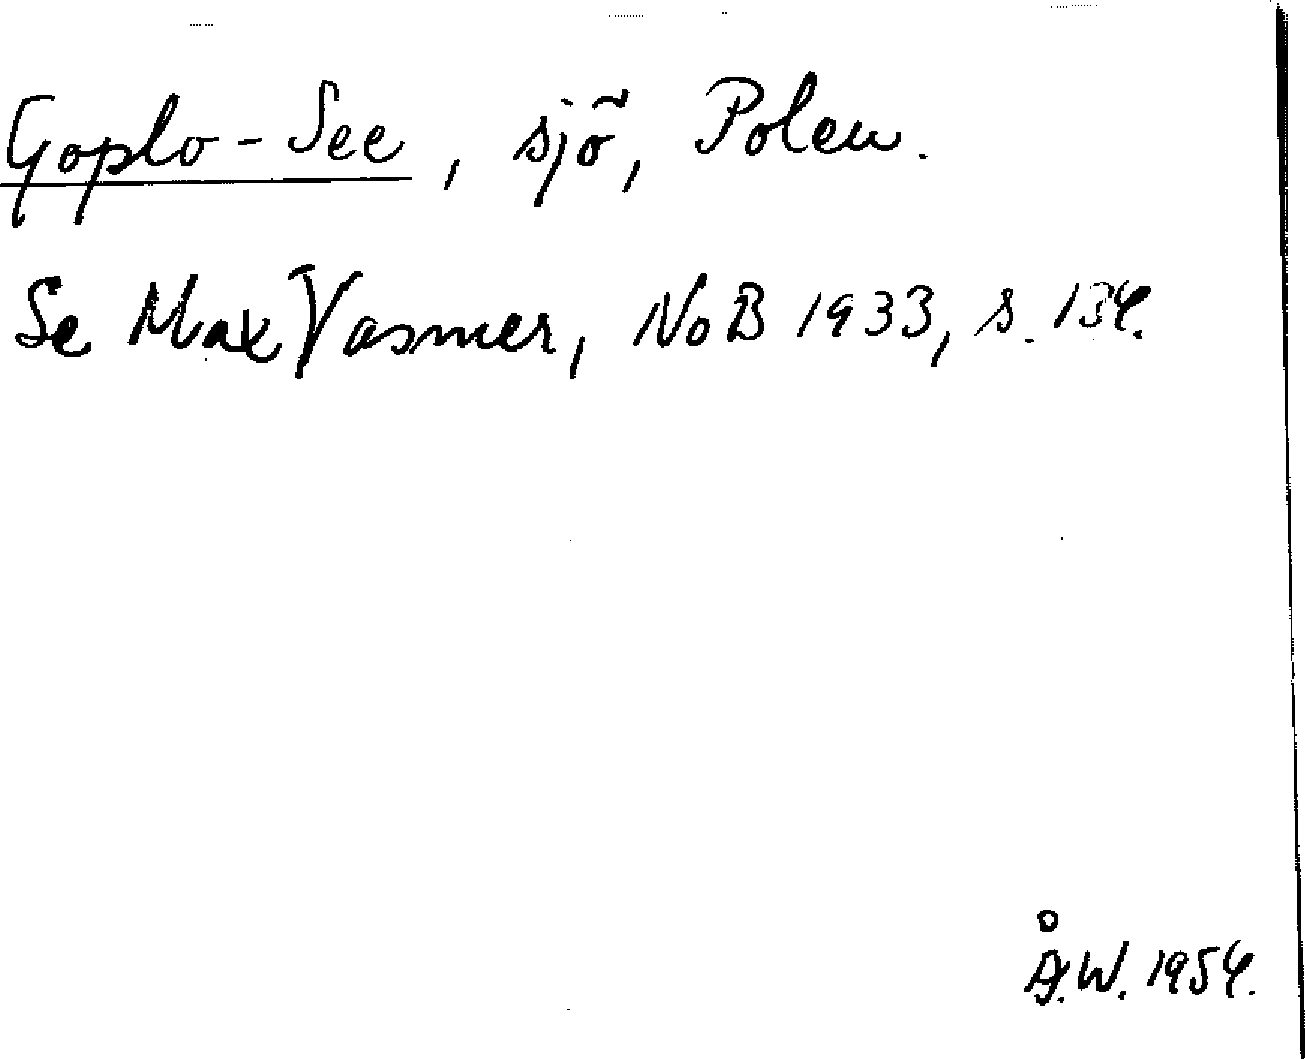 Goplo-See, sjö, Polen.
Se Max Vasmer, NoB 1933, s. 134.
Å.W. 1954.